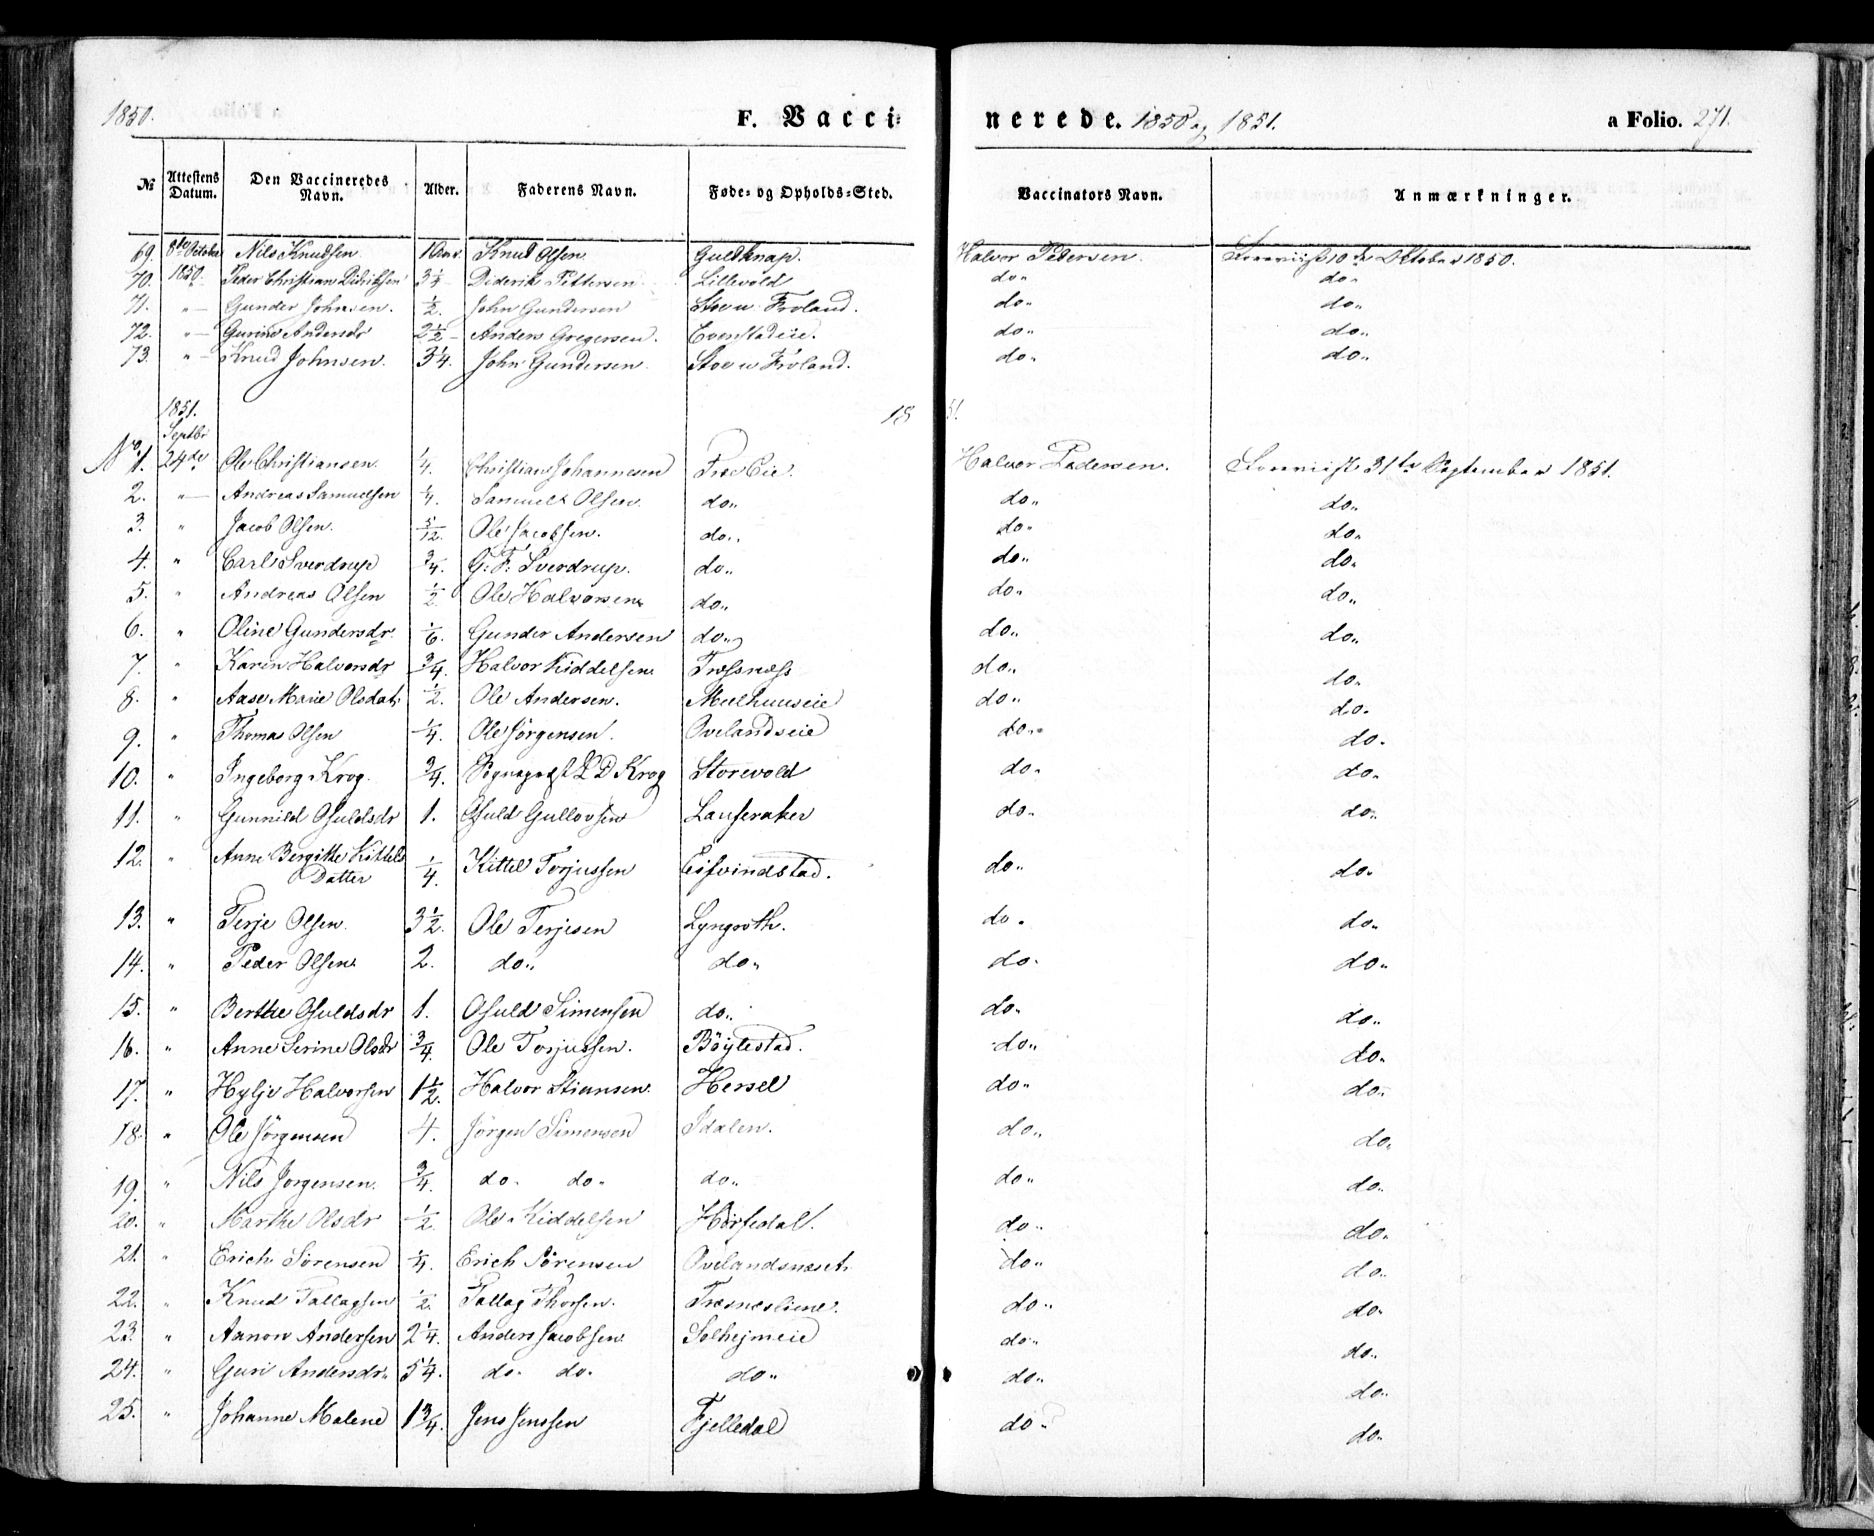 1850. F. Vacci- nerede. 1850 og 1851. a Folio. 271.
№ Attestens Datum. Den Vaccineredes Navn. Alder. Faderens Navn. Føde- og Opholds-Sted. Vaccinators Navn. Anmærkninger.
69. 8de October Nils Knudsen 1 Knud Olsen Guldknap. Halvor Pedersen. Foreviist 10de Oktober 1850.
70. 1850. Peder Christian Didriksen Diderik Pettersen Lillevold do„ do„
71. „ Gunder Johnsen. ½. John Gundersen Stoe u Froland. do„ do„
72. „ Gurine Andersdr 2½ Anders Gregersen. Evenstadeie. do„ do„
73. „ Knud Johnsen. 3¼. John Gundersen Stoe u Froland. do„ do„
1851. 18 51.
Septbr
No 1. 24de Ole Christiansen. ¼. Christian Johannesen Træe Eie. Halvor Pedersen. Foreviist 31te September 1851.
2. „ Andreas Samuelsen ¼. Samuel Olsen do„ do„ do„
3. „ Jacob Olsen. 5/12. Ole Jacobsen. do„ do„ do„
4. „ Carl Sverdrup ¾. G: F: Sverdrup. do„ do„ do„
5. „ Andreas Olsen ½ Ole Halvorsen do„ do„ do„
6. „ Oline Gundersdr. 1/6. Gunder Andersen do„ do„ do„
7. „ Karen Halvorsdr ¾. Halvor Kiddelsen Træsnæss do„ do„
8. „ Aase Marie Olsdat. ½. Ole Andersen. Mælhuuseie do„ do„
9. „ Thomas Olsen ¼. Ole Jørgensen. Ovelandseie do„ do.
10. „ Ingeborg Krog. ¾. Sognepræst L D Krog Storevold do„ do„
11. „ Gunnild Osuldsdr 1. Osuld Gullovsen Lauferaker do„ do„
12. „ Anne Bergitte Kittels Datter ¼. Kittel Torjussen Eifvindstad. do„ do„
13. „ Terje Olsen. 3½. Ole Terjesen Lyngroth. do„ do„
14. „ Peder Olsen 2. do„ do„ do„ do„
15. „ Berthe Osuldsdr 1. Osuld Simensen do„ do„ do„
16. „ Anne Serine Olsdr ¾. Ole Torjussen. Böylestad. do„ do„
17. „ Hylje Halvorsen 1½. Halvor Stiansen. Hersel do„ do„
18. „ Ole Jörgensen 4. Jörgen Simensen Idalen. do„ do„
19. „ Nils Jörgensen. ¾. do„ do„ do„ do„ do„
20. „ Marthe Olsdr ½. Ole Kiddelsen Hörsedal. do„ do„
21. „ Erich Sörensen ¼. Erich Sörensen Ovelandsnæset. do„ do„
22. „ Knud Tallagsen ½. Tallag Thorsen. do„ do„
23. „ Aanon Andersen 2¼. Anders Jacobsen Solhejmeie do„ do„
24. „ Guri Andersdr„ 5¼. do„ do„ do„ do„ do„
25. „ Johanne Malene 1¾. Jens Jenssen Fjelledal do„ do„